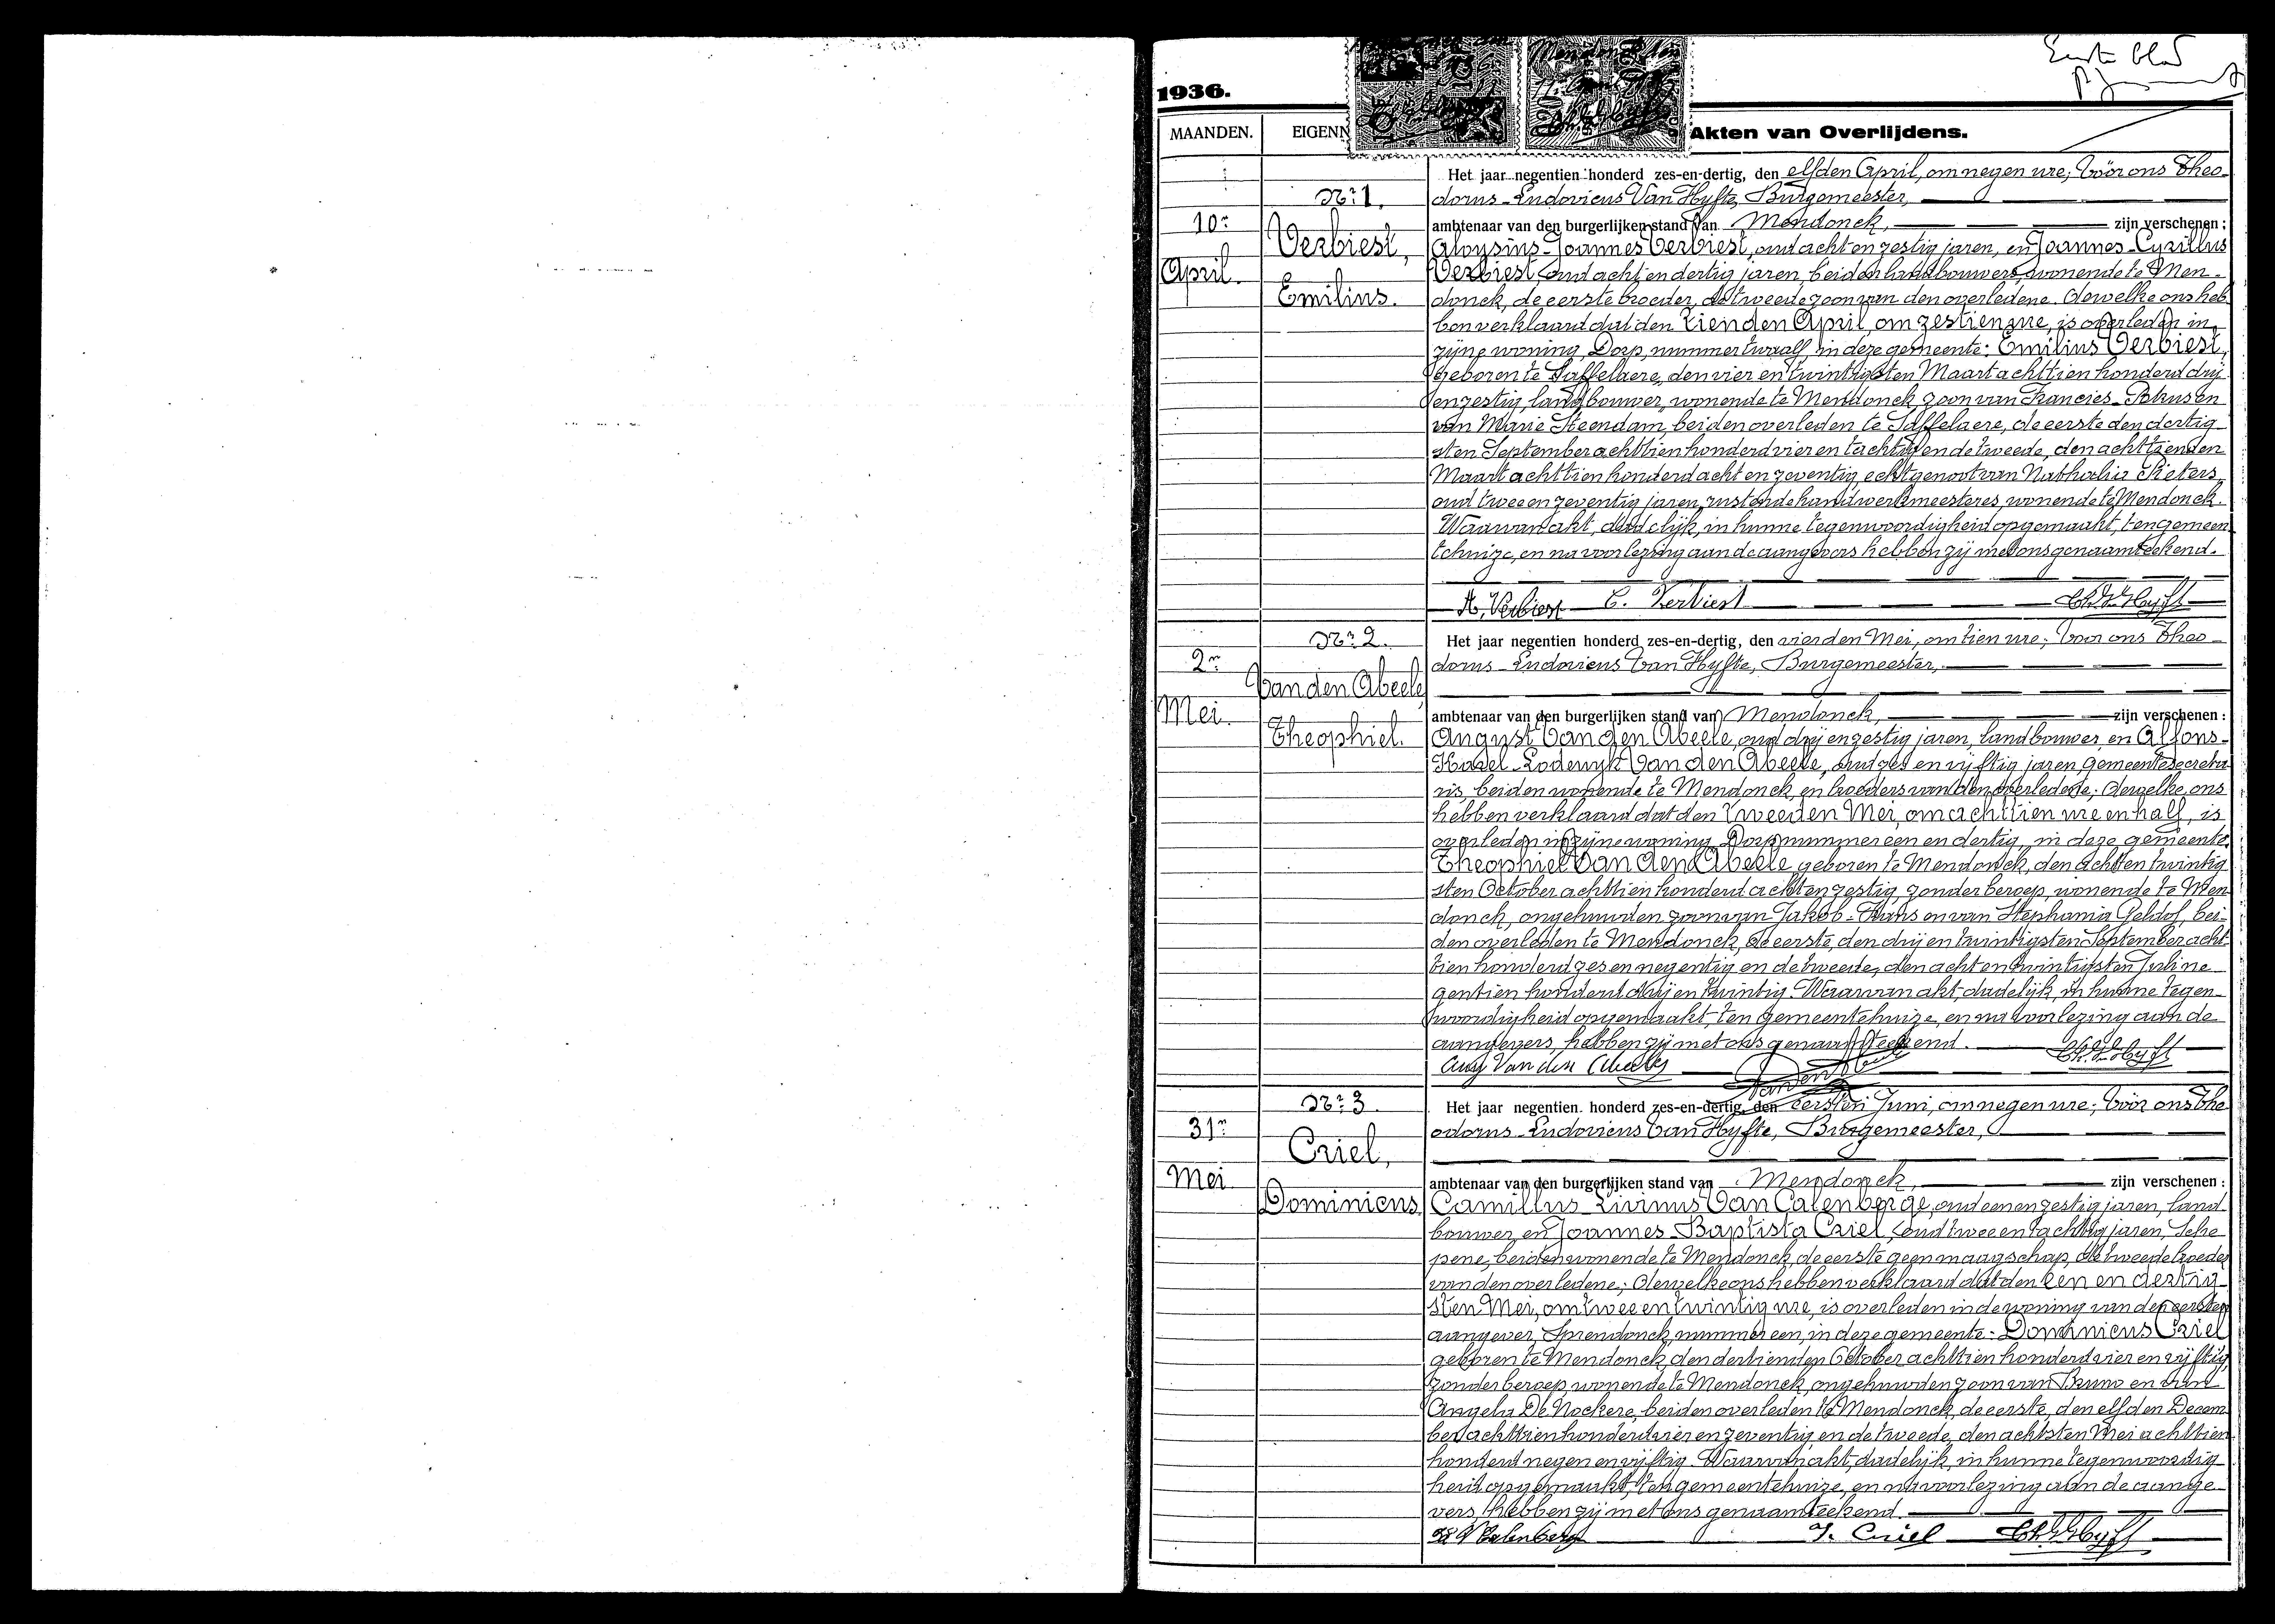 Eerste blad
1936.
MAANDEN.
EIGENN
Akten van Overlijdens.
Nr. 1.
10n
April.
Verbiest,
Emilius.
Het jaar negentien honderd zes-en-dertig, den elfden April, om negen ure; Vóór ons Theo-
dorus-Ludovicus Van Hyfte, Burgemeester,
ambtenaar van den burgerlijken stand van Mendonck, zijn verschenen:
Aloysius-Joannes Verbiest, oud acht en zestig jaren, en Joannes-Cyrillus
Verbiest, oud acht en dertig jaren, beiden landbouwers, wonende te Men-
donck, de eerste broeder, de tweede zoon van den overledene. Dewelke ons heb-
ben verklaard dat den tienden April, om zestien ure, is overleden in
zijne woning, Dorp, nummer twaalf, in deze gemeente: Emilius Verbiest,
geboren te Saffelaere, den vier en twintigsten Maart achttien honderd drij
en zestig, landbouwer, wonende te Mendonck, zoon van Francies-Petrus en
van Marie Steendam, beiden overleden te Saffelaere, de eerste den dertig-
sten September achttien honderd vier en tachtig en de tweede, den achttienden
Maart achttien honderd acht en zeventig, echtgenoot van Nathalia Pieters,
oud twee en zeventig jaren, rustende handwerkmeesteres, wonende te Mendonck.
Waarvan akt, dadelijk, in hunne tegenwoordigheid opgemaakt, ten gemeen-
tehuize, en na voorlezing aan de aangevers hebben zij met ons genaamteekend.
A. Verbiest C. Verbiest Th. V. Hyfte
Nr. 2.
2n
Mei.
Van den Abeele,
Theophiel.
Het jaar negentien honderd zes-en-dertig, den vierden Mei, om tien ure; Voor ons Theo-
dorus-Ludovicus Van Hyfte, Burgemeester,
ambtenaar van den burgerlijken stand van Mendonck, zijn verschenen:
August Van den Abeele, oud drij en zestig jaren, landbouwer, en Alfons-
Karel-Lodewyk Van den Abeele, oud zes en vijftig jaren, gemeentesecreta-
ris, beiden wonende te Mendonck, en broeders van den overledene; dewelke ons
hebben verklaard dat den tweeden Mei, om achttien ure en half, is
overleden in zijne woning, Dorp nummer een en dertig, in deze gemeente:
Theophiel Van den Abeele, geboren te Mendonck, den acht en twintig-
sten October achttien honderd acht en zestig, zonder beroep, wonende te Men-
donck, ongehuwden zoon van Jakob-Frans en van Stephania Geldof, bei-
den overleden te Mendonck, de eerste, den drij en twintigsten September acht-
tien honderd zes en negentig en de tweede, den acht en twintigsten Juli ne-
gentien honderd drij en twintig. Waarvan akt, dadelijk, in hunne tegen-
woordigheid opgemaakt, ten gemeentehuize, en na voorlezing aan de
aangevers, hebben zij met ons genaamteekend.
Aug Van den Abeele Van den Abeele Th. V. Hyfte
Nr. 3.
31n
Mei.
Criel,
Dominicus.
Het jaar negentien honderd zes-en-dertig, den eersten Juni, om negen ure; Vóór ons The-
odorus-Ludovicus Van Hyfte, Burgemeester,
ambtenaar van den burgerlijken stand van Mendonck, zijn verschenen:
Camillus-Livinus Van Calenberge, oud een en zestig jaren, land-
bouwer, en Joannes-Baptista Criel, oud twee en tachtig jaren, Sche-
pene, beiden wonende te Mendonck, de eerste geen maagschap, de tweede broeder
van den overledene; dewelke ons hebben verklaard dat den een en dertig-
sten Mei, om twee en twintig ure, is overleden in de woning van den eersten
aangever, Sprendonck, nummer een, in deze gemeente: Dominicus Criel
geboren te Mendonck, den dertienden October achttien honderd vier en vijftig,
zonder beroep, wonende te Mendonck, ongehuwden zoon van Bruno en van
Angela De Nockere, beiden overleden te Mendonck, de eerste, den elfden Decem-
ber achttien honderd vier en zeventig en de tweede, den achtsten Mei achttien
honderd negen en vijftig. Waarvan akt, dadelijk, in hunne tegenwoordig-
heid opgemaakt, ten gemeentehuize, en na voorlezing aan de aange-
vers, hebben zij met ons genaamteekend.
V Calenberg J. Criel Th. V. Hyfte